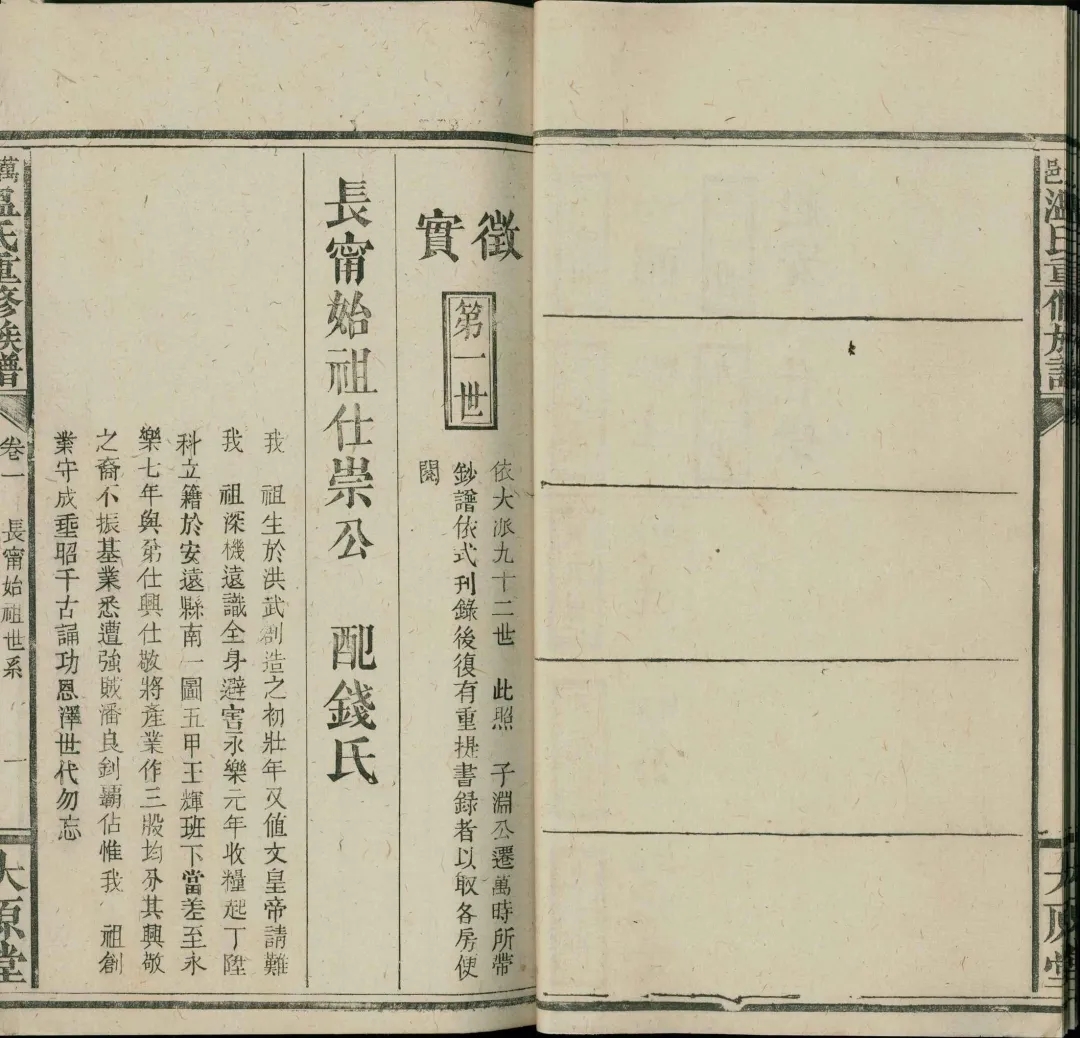 邑溫氏重修族譜
徵實
第一世
依大派九十二世 此照 子淵公遷萬時所帶
鈔譜依式刊錄後復有重提書錄者以取各房便
閱
長甯始祖仕崇公 配錢氏
我 祖生於洪武創造之初壯年又值文皇帝請難
我 祖深機遠識全身避害永樂元年收糧起丁陞
科立籍於安遠縣南一圖五甲王輝班下當差至永
樂七年與弟仕興仕敬將產業作三股均分其興敬
之裔不振基業悉遭強賊潘良釗霸佔惟我 祖創
業守成垂昭千古誦功恩澤世代勿忘
萬溫氏重修族譜
卷一
長甯始祖世系
一
太原堂